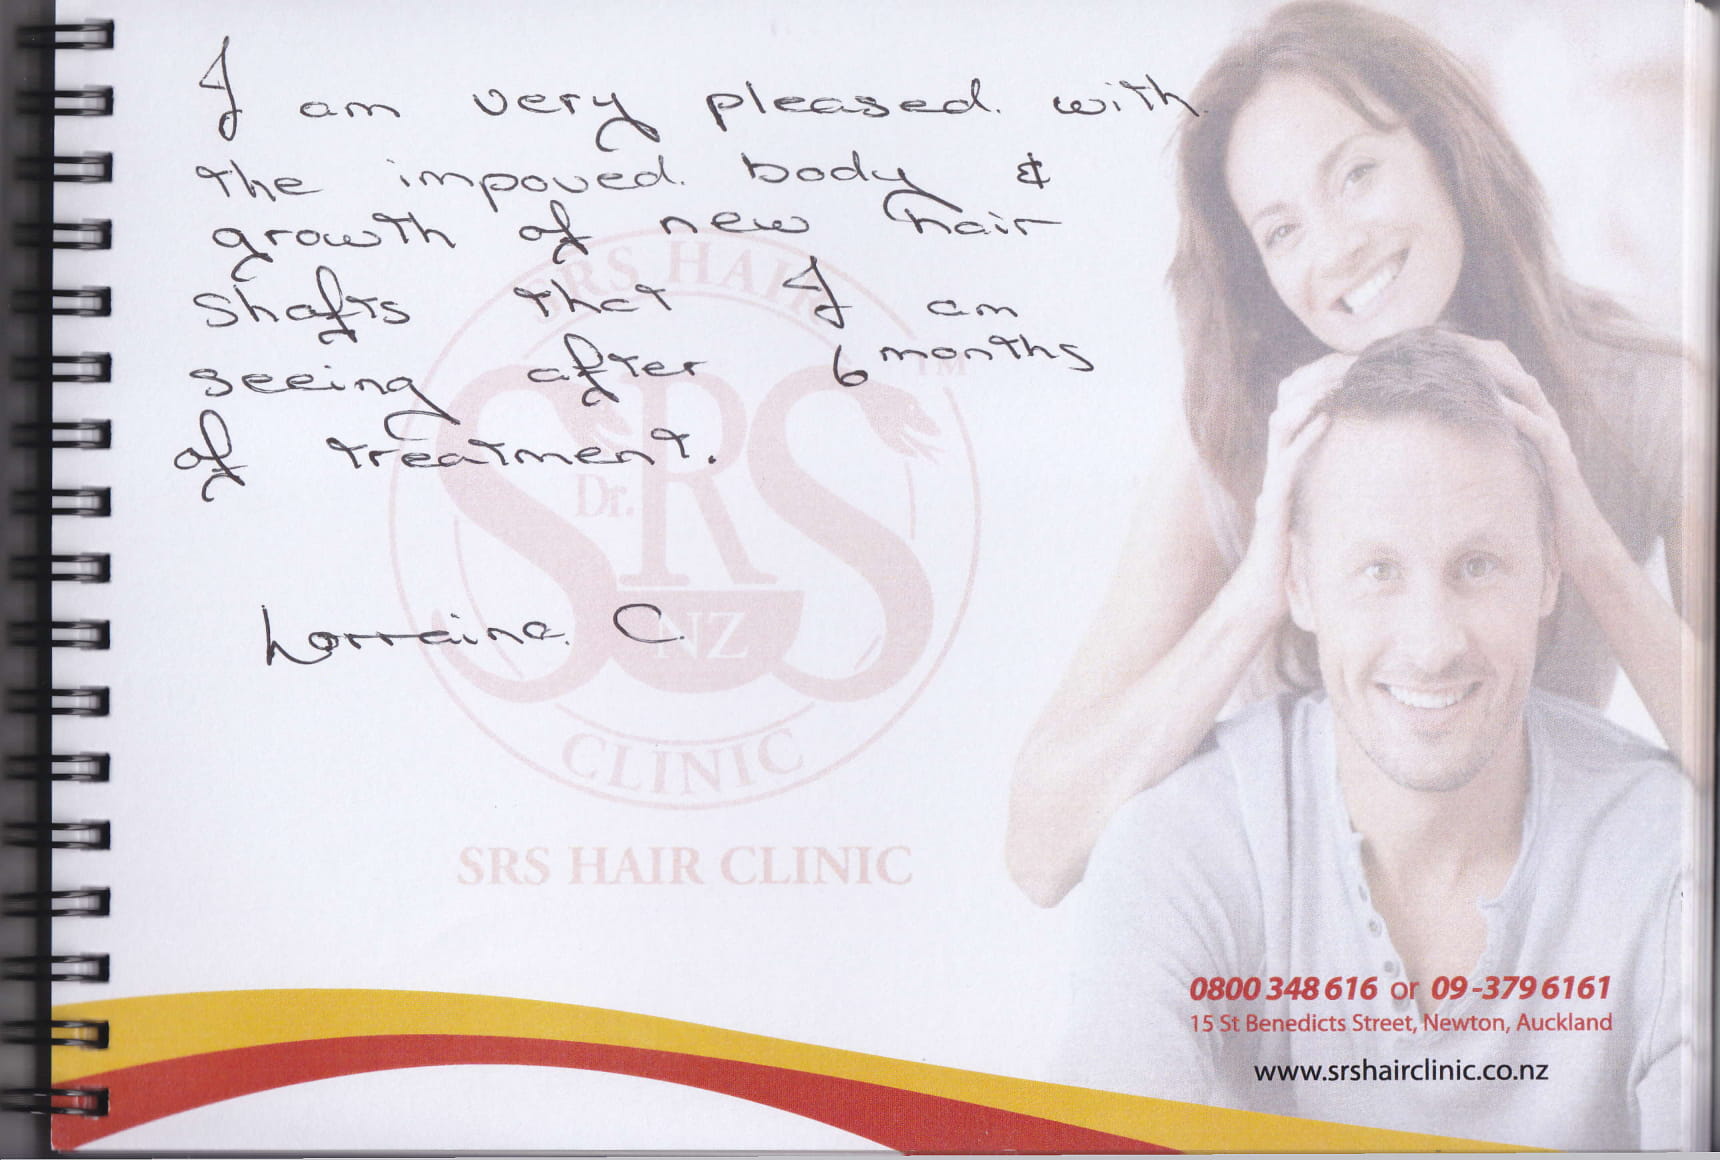 I am very pleased. with
the impoved. body &
growth of new hair
shafts that I am
seeing after 6 months
of treatment.
Lorraine. C.
SRS HAIR
TM
Dr.
SRS
NZ
CLINIC
SRS HAIR CLINIC
0800 348 616 or 09-379 6161
15 St Benedicts Street, Newton, Auckland
www.srshairclinic.co.nz